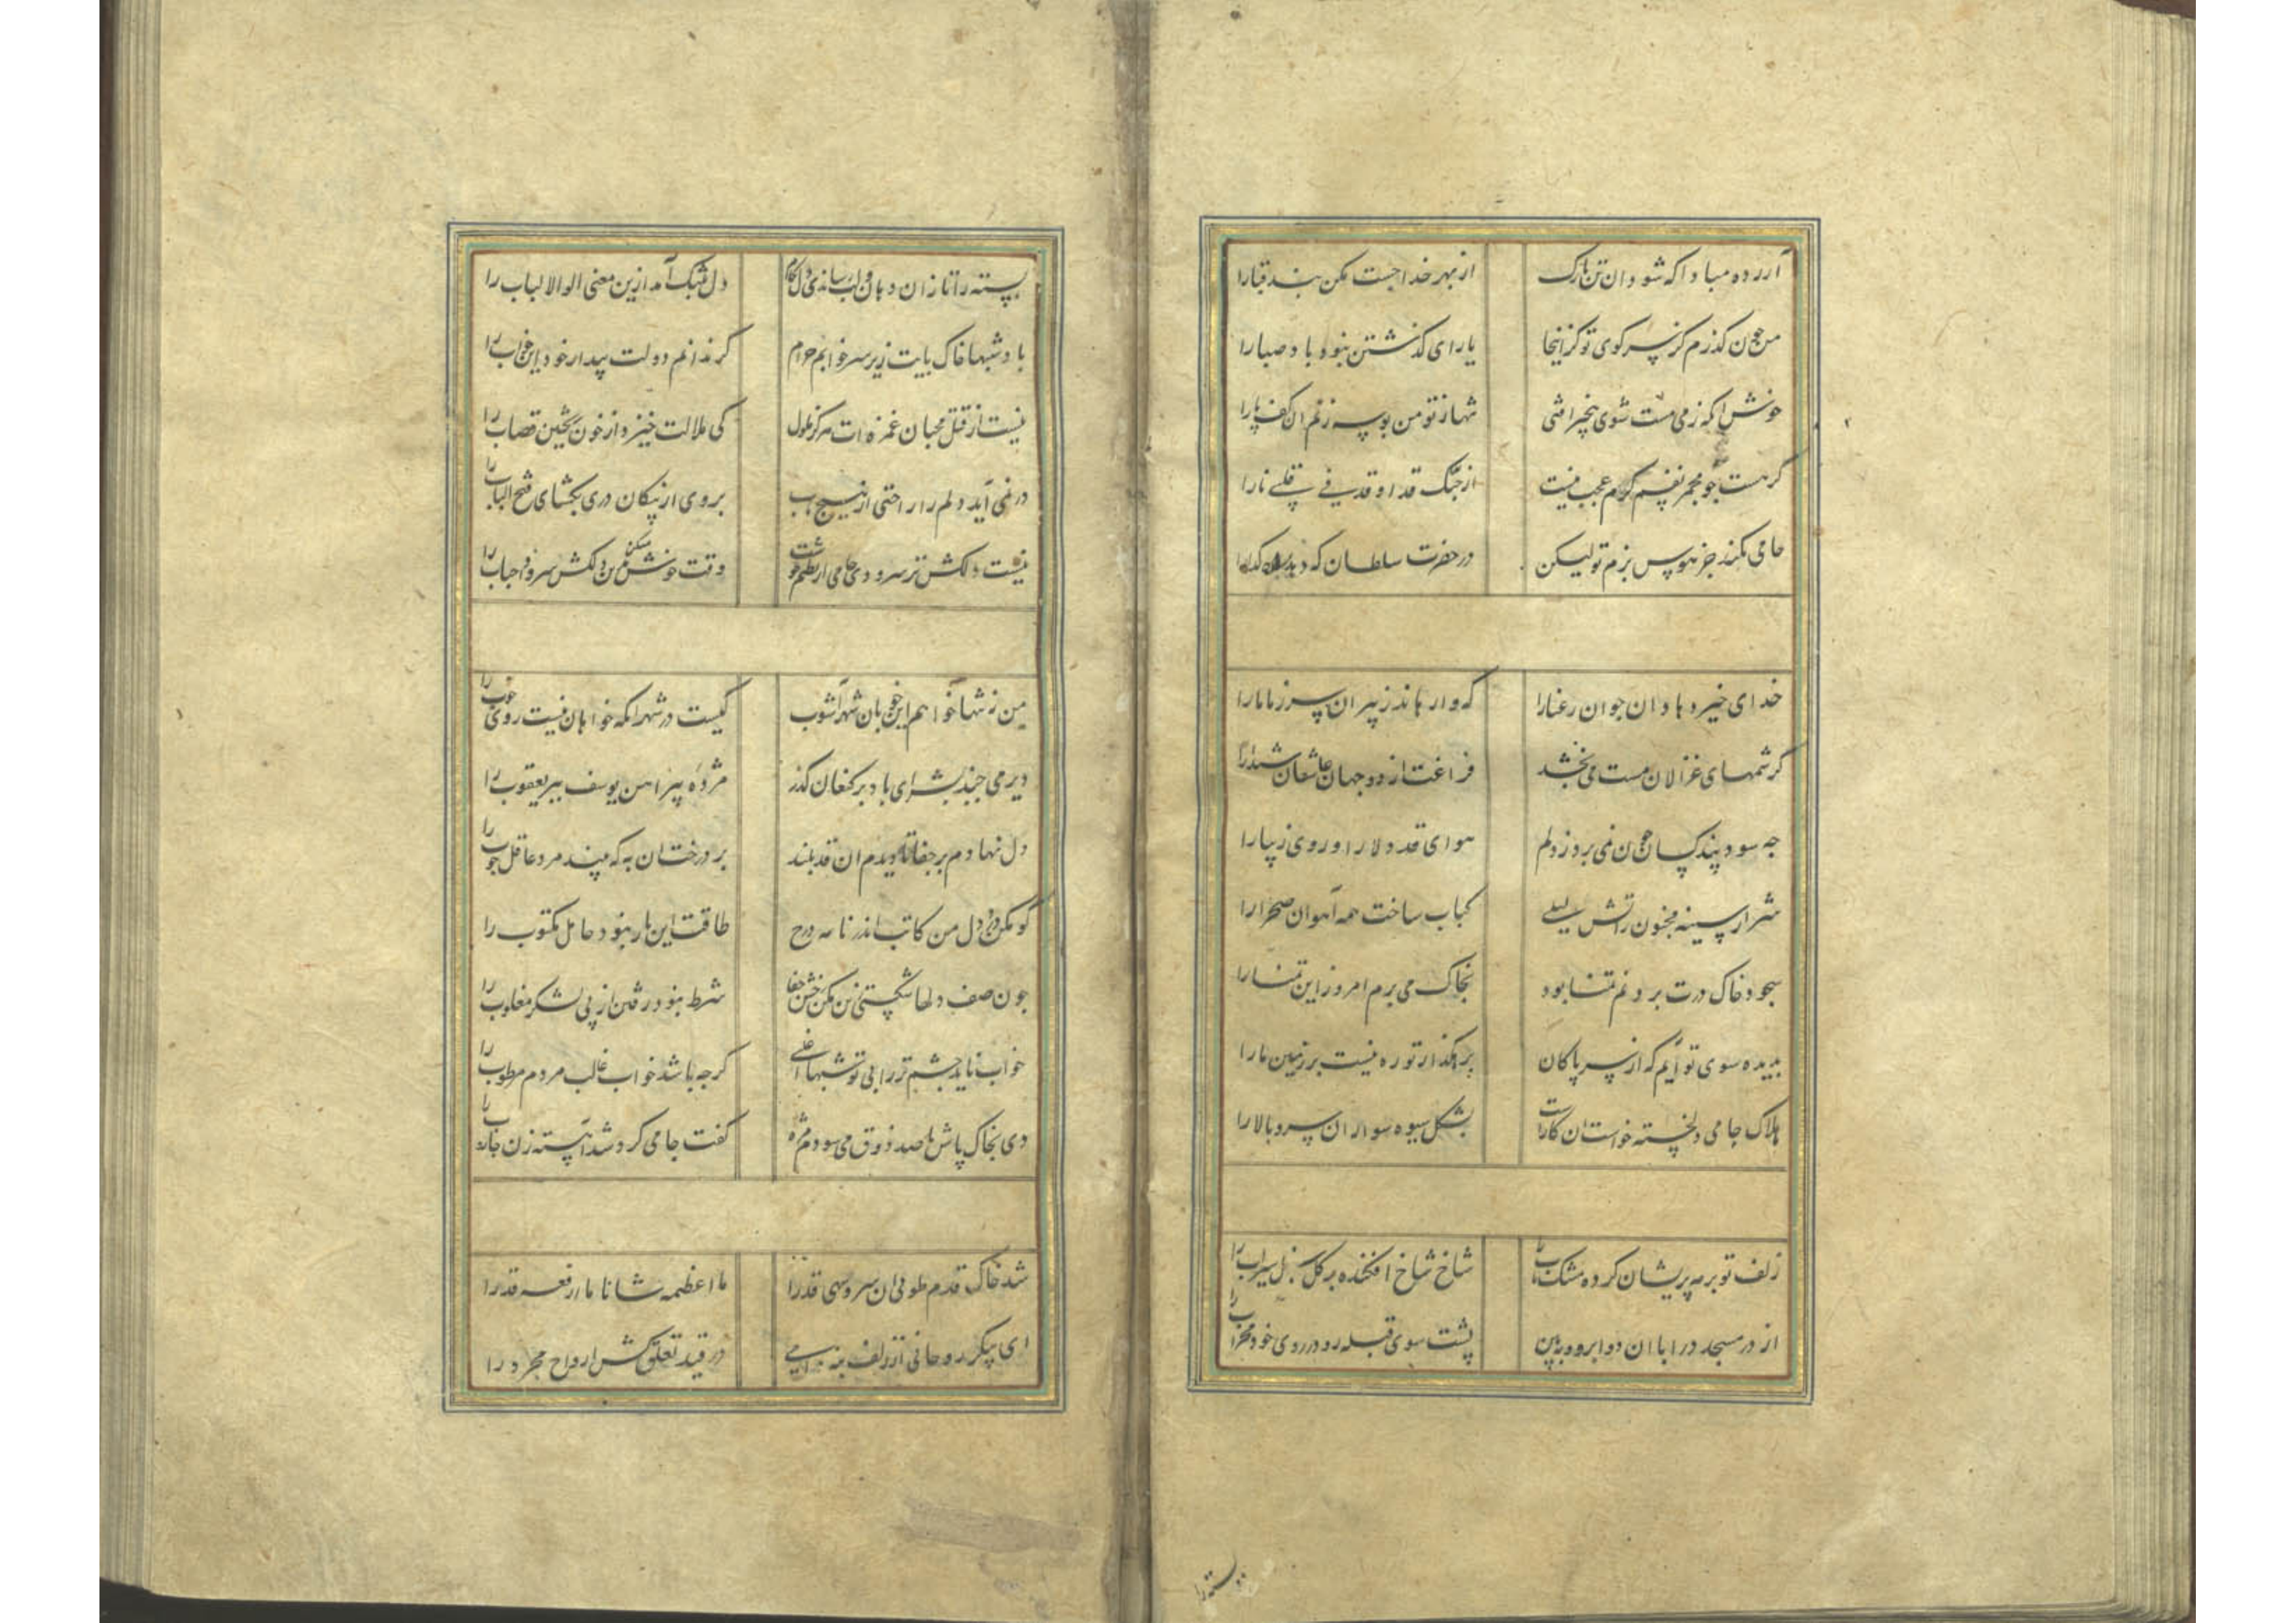 آزرده مبادا که شود آن تن نازک از بهر خدا جست مکن بند قبا را
من چون گذرم کز سر کوی تو کز آنجا یارای گذشتن نبود باد صبا را
خوش آنکه ز می مست شوی بیخبر افتی شبها ز تو من بوسه زنم آن کف پا را
گر هست چو مجمر نفسم گرم عجب نیست
جامی نکند جز هوس بزم تو لیکن در حضرت سلطان که دهد راه گدا را
خدای خیر دهاد آن جوان رعنا را که وارهاند ز پیران پسر ز ما ما را
کرشمهای غزالان مست می بخشد فراغت از دو جهان عاشقان شیدا را
چه سود پند کسان چون نمی برد ز دلم هوای قد دلارا و روی زیبا را
شرار سینه مجنون ز آتش لیلی کباب ساخت همه آهوان صحرا را
سجود خاک درت بر دلم تمنا بود بخاک می برم امروز این تمنا را
بدیده سوی تو آیم که از سر پاکان برهگذار تو ره نیست بر زمین ما را
هلاک جامی دلخسته خواست آن کاراست بشکل شیوه سواران سرو بالا را
زلف تو بر مه پریشان کرده مشک ناب را شاخ شاخ افکنده بر گل سنبل سیراب را
از در مسجد درآ با آن دو ابرو و ببین پشت سوی قبله رو در روی خود محراب را
پسته را
پسته را تا زان دهان و لب رساندی دل بکام دل بتنگ آمد ازین معنی اولوالالباب را
باد شبها خاک پایت زیر سر خوابم حرام گر ندانم دولت بیدار خود این خواب را
نیست از قتل محبان غمزه ات هرگز ملول کی ملالت خیزد از خون ریختن قصاب را
در نمی آید دلم را راحتی از هیچ باب بروی از پیکان دری بگشای فتح الباب را
نیست دلکش تر سرودی جامی از نظم خوشت وقت خوش کن زین دلکش سرود احباب را
من نه تنها خواهم این خوبان شهرآشوب را کیست در شهر آنکه خواهان نیست روی خوب را
دیر می جنبد بشیر ای باد بر کنعان گذر مژده پیراهن یوسف ببر یعقوب را
دل نهادم بر جفا تا دیدم آن قد بلند بر درختان به که بیند مرد عاقل چوب را
گو مکن درد دل من کاتب اندر نامه درج طاقت این بار نبود حامل مکتوب را
چون صف دلها شکستی زین مکن خش جفا شرط نبود رفتن از پی لشکر مغلوب را
خواب ناید چشم تر را بی تو شبها اغلبی گرچه باشد خواب غالب مردم مرطوب را
دی بخاک پاش با صد ذوق می سودم مژه گفت جامی گرد شد آهسته زن جاروب را
شد خاک قدم طوبی آن سرو سهی قد را ما اعظمه شانا ما ارفعه قدرا
ای پیکر روحانی از زلف بنه دامی در قید تعلق کش ارواح مجرد را